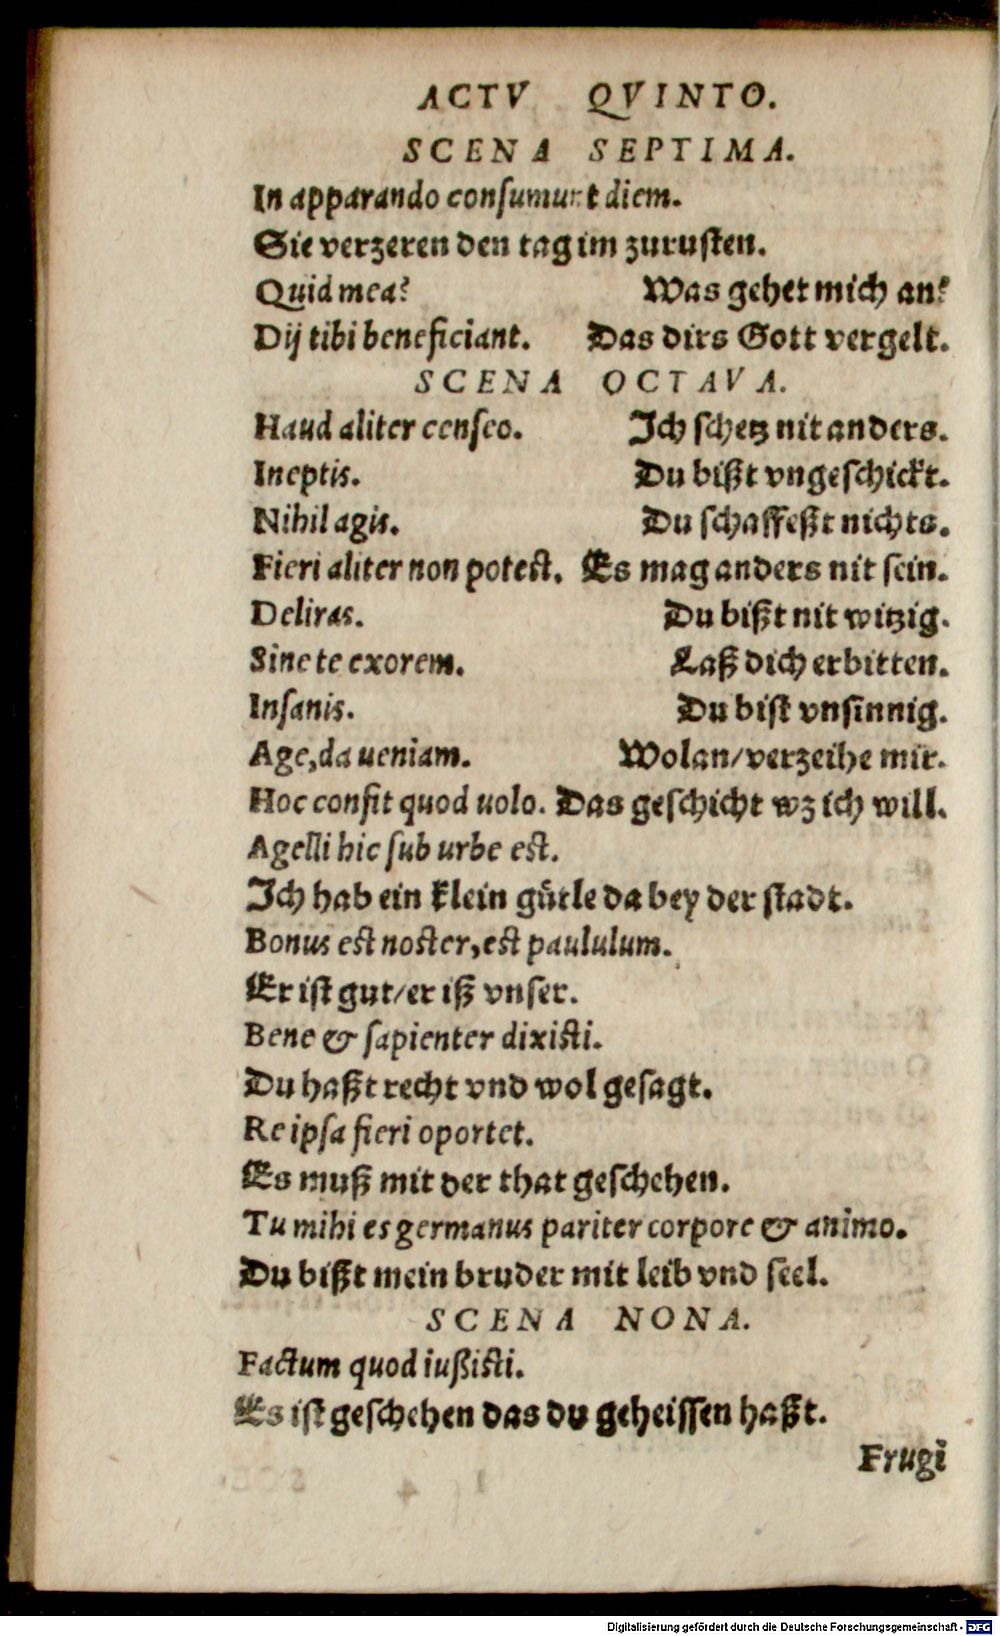 ACTV QVINTO.
SCENA SEPTIMA.
In apparando consumunt diem.
Sie verzeren den tag im zurusten.
Quid mea? Was gehet mich an?
Dij tibi beneficiant. Das dirs Gott vergelt.
SCENA OCTAVA.
Haud aliter censeo. Ich schetz nit anders.
Ineptis. Du bißt vngeschickt.
Nihil agis. Du schaffeßt nichts.
Fieri aliter non potest. Es mag anders nit sein.
Deliras. Du bißt nit witzig.
Sine te exorem. Laß dich erbitten.
Insanis. Du bist vnsinnig.
Age, da ueniam. Wolan/verzeihe mir.
Hoc confit quod uolo. Das geschicht wz ich will.
Agelli hic sub urbe est.
Ich hab ein klein gütle da bey der stadt.
Bonus est noster, est paululum.
Er ist gut/er iß vnser.
Bene & sapienter dixisti.
Du haßt recht vnd wol gesagt.
Re ipsa fieri oportet.
Es muß mit der that geschehen.
Tu mihi es germanus pariter corpore & animo.
Du bißt mein bruder mit leib vnd seel.
SCENA NONA.
Factum quod iußisti.
Es ist geschehen das du geheissen haßt.
Frugi
Digitalisierung gefördert durch die Deutsche Forschungsgemeinschaft - DFG